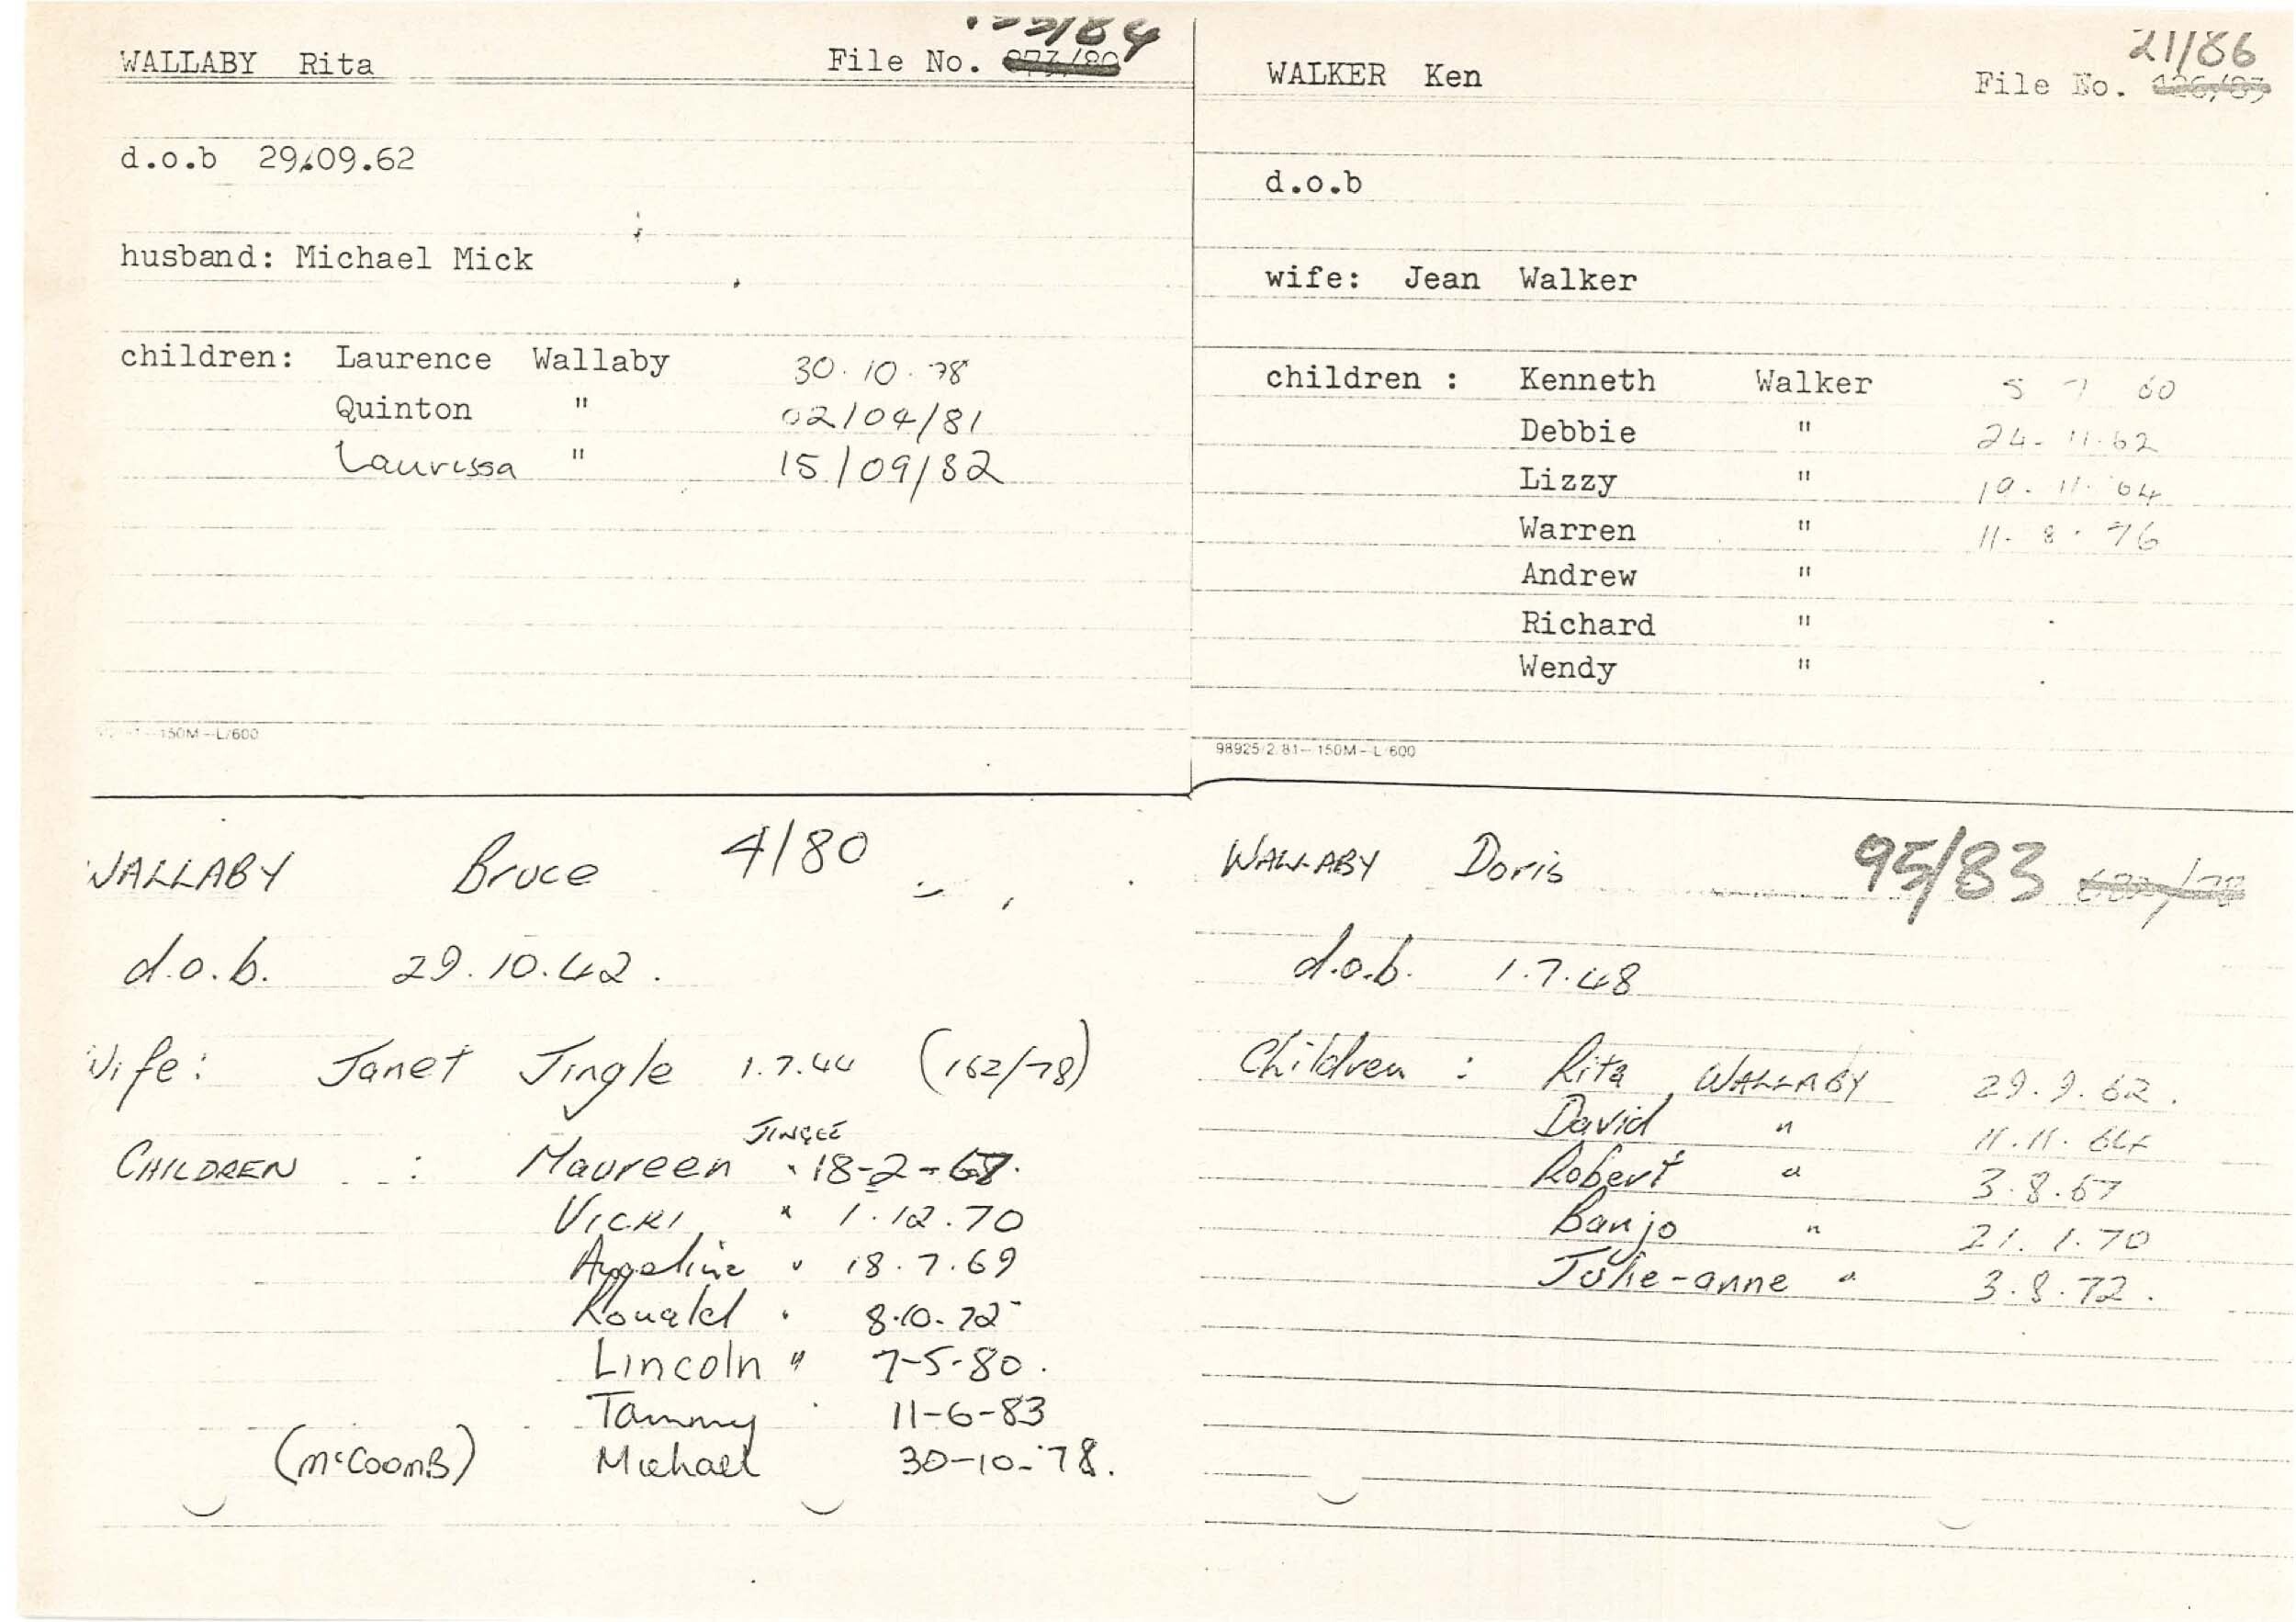 WALLABY Rita File No.
d.o.b 29.09.62
husband: Michael Mick
children: Laurence Wallaby 30.10.78
Quinton " 02/04/81
Laurissa " 15/09/82
150M-L/600
21/86
WALKER Ken File No.
d.o.b
wife: Jean Walker
children : Kenneth Walker 5 7 60
Debbie " 24.11.62
Lizzy " 19.11.64
Warren " 11.8.76
Andrew "
Richard "
Wendy "
98925/2.81-150M-L/600
WALLABY Bruce 4/80
d.o.b. 29.10.42.
Wife: Janet Jingle 1.7.44 (162/78)
JINGLE
CHILDREN : Maureen " 18-2-68.
VICKI " 1.12.70
Angeline " 18.7.69
Ronald " 8.10.72
Lincoln " 7-5-80.
Tammy 11-6-83
(McCoomB) Michael 30-10-78.
WALLABY Doris 95/83
d.o.b. 1.7.48
Children : Rita WALLABY 29.9.62.
David " 11.11.64
Robert " 3.8.67
Banjo " 21.1.70
Julie-anne " 3.8.72.